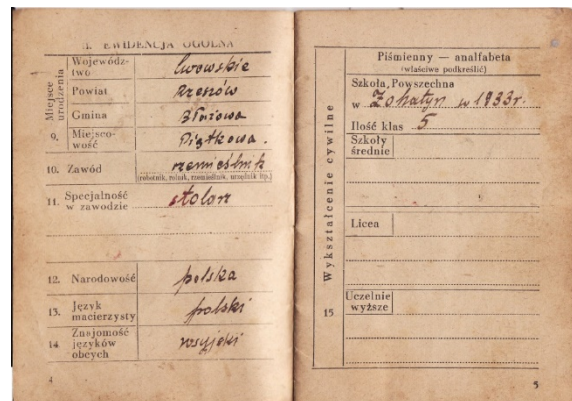 II. EWIDENCJA OGÓLNA
Miejsce urodzenia
Wojewódz-
two lwowskie
Powiat Rzeszów
Gmina Błażowa
9. Miejsco-
wość Piątkowa.
10. Zawód rzemieślnik
(robotnik, rolnik, rzemieślnik, urzędnik itp.)
11. Specjalność
w zawodzie stolarz
12. Narodowość polska
13. Język
macierzysty polski
14 Znajomość
języków
obcych rosyjski
4
Wykształcenie cywilne
15
Piśmienny — analfabeta
(właściwe podkreślić)
Szkoła Powszechna
w Zohatyn w 1933r.
Ilość klas 5
Szkoły
średnie
Licea
Uczelnie
wyższe
5